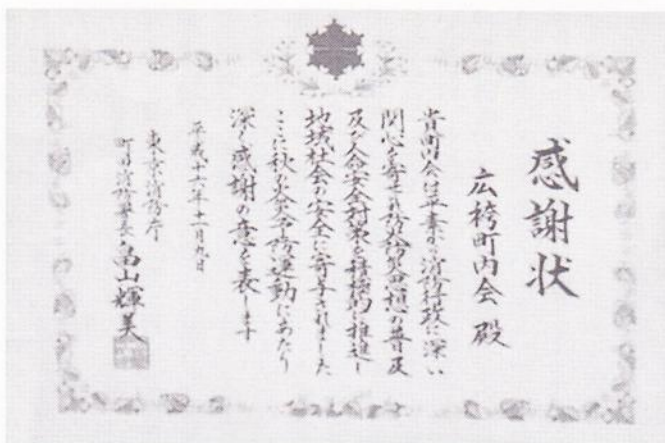 感謝状
広袴町内会 殿
貴町内会は平素から消防行政に深い
関心を寄せられ防火防災思想の普及
及び人命安全対策を積極的に推進し
地域社会の安全に寄与されました
ここに秋の火災予防運動にあたり
深く感謝の意を表します
平成十六年十一月九日
東京消防庁
町田消防署長 畠山輝美